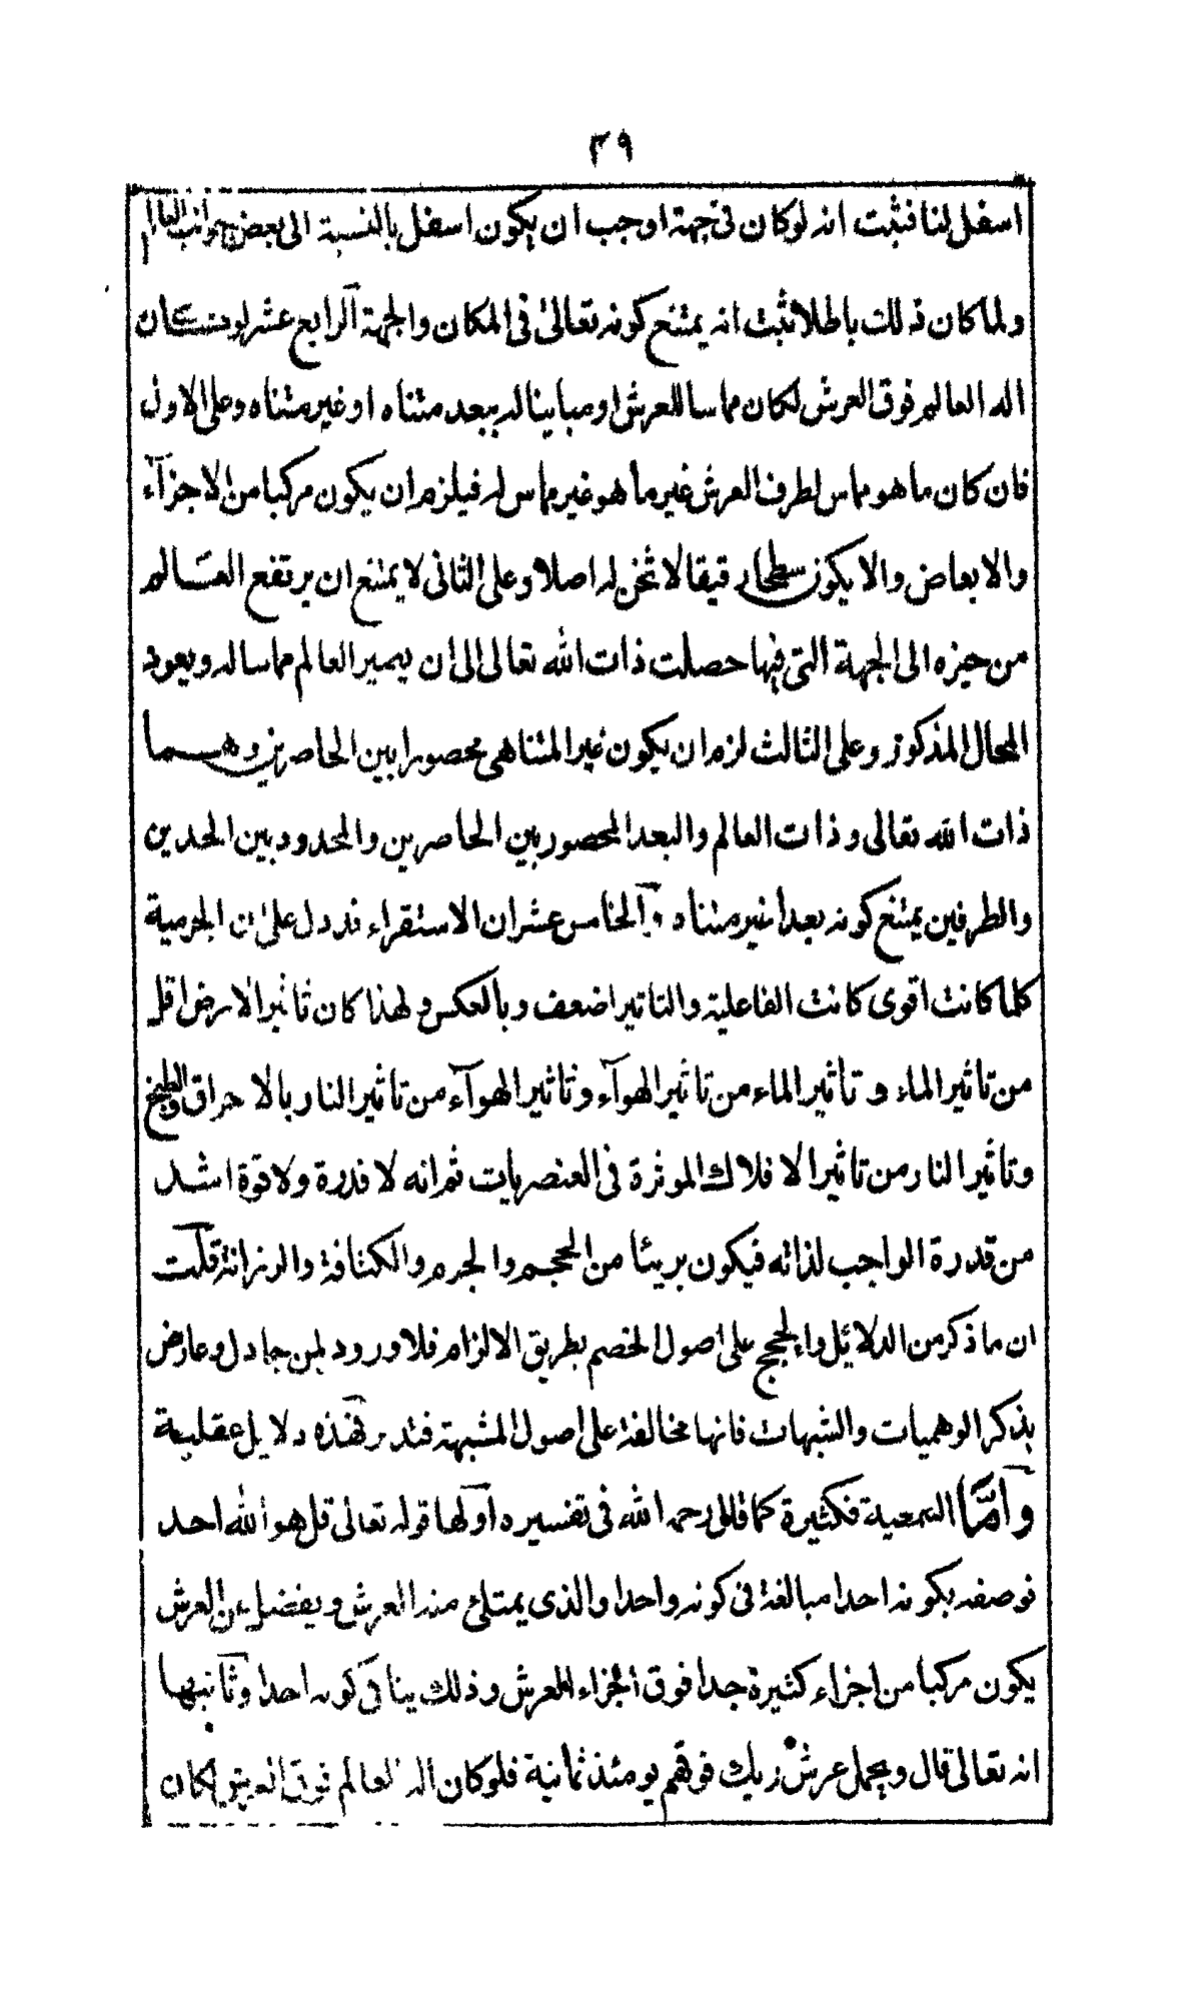 ٣٩
اسفل لنا فثبت انه لو كان فى جهة اوجب ان يكون اسفل بالنسبة الى بعض جوانب العالم
ولما كان ذلك باطلا ثبت انه يمتنع كونه تعالى فى المكان والجهة الرابع عشر لو كان
اله العالم فوق العرش لكان مماسا للعرش او مباينا له ببعد متناه او غير متناه وعلى الاول
فان كان ما هو مماس لطرف العرش غير ما هو غير مماس له فيلزم ان يكون مركبا من الاجزآء
والابعاض والا يكون سطحا رقيقا لا ثخن له اصلا وعلى الثانى لا يمتنع ان يرتفع العالم
من حيزه الى الجهة التى فيها حصلت ذات الله تعالى الى ان يصير العالم مماسا له ويعود
المحال المذكور وعلى الثالث لزم ان يكون غير المتناهى محصورا بين الحاصرين وهما
ذات الله تعالى وذات العالم والبعد المحصور بين الحاصرين والمحدود بين الحدين
والطرفين يمتنع كونه بعدا غير متناه والخامس عشر ان الاستقراء قد دل على ان الجرمية
كلما كانت اقوى كانت الفاعلية والتاثير اضعف وبالعكس ولهذا كان تاثير الارض اقل
من تاثير الماء و تأثير الماء من تاثير الهوآء وتاثير الهوآء من تاثير النار بالاحراق والطبخ
وتاثير النار من تاثير الافلاك الموثرة فى العنصريات ثم انه لا قدرة ولا قوة اشد
من قدرة الواجب لذاته فيكون بريئا من الحجم والجرم والكثافة والرزانة قلت
ان ما ذكر من الدلائل والحجج على اصول الخصم بطريق الالزام فلا ورود لمن جادل وعارض
بذكر الوهميات والشبهات فانها مخالفة على اصول المشبهة فتدبر فهذه دلايل عقلية
وأمّا السمعية فكثيرة كما قال رحمه الله فى تفسيره اولها قوله تعالى قل هو الله احد
فوصفه بكونه احدا مبالغة فى كونه واحدا والذى يمتلئ منه العرش ويفضل عن العرش
يكون مركبا من اجزاء كثيرة جدا فوق اجزاء العرش وذلك ينافى كونه احدا وثانيها
انه تعالى قال ويحمل عرش ربك فوقهم يومئذ ثمانية فلو كان اله العالم فوق العرش لكان